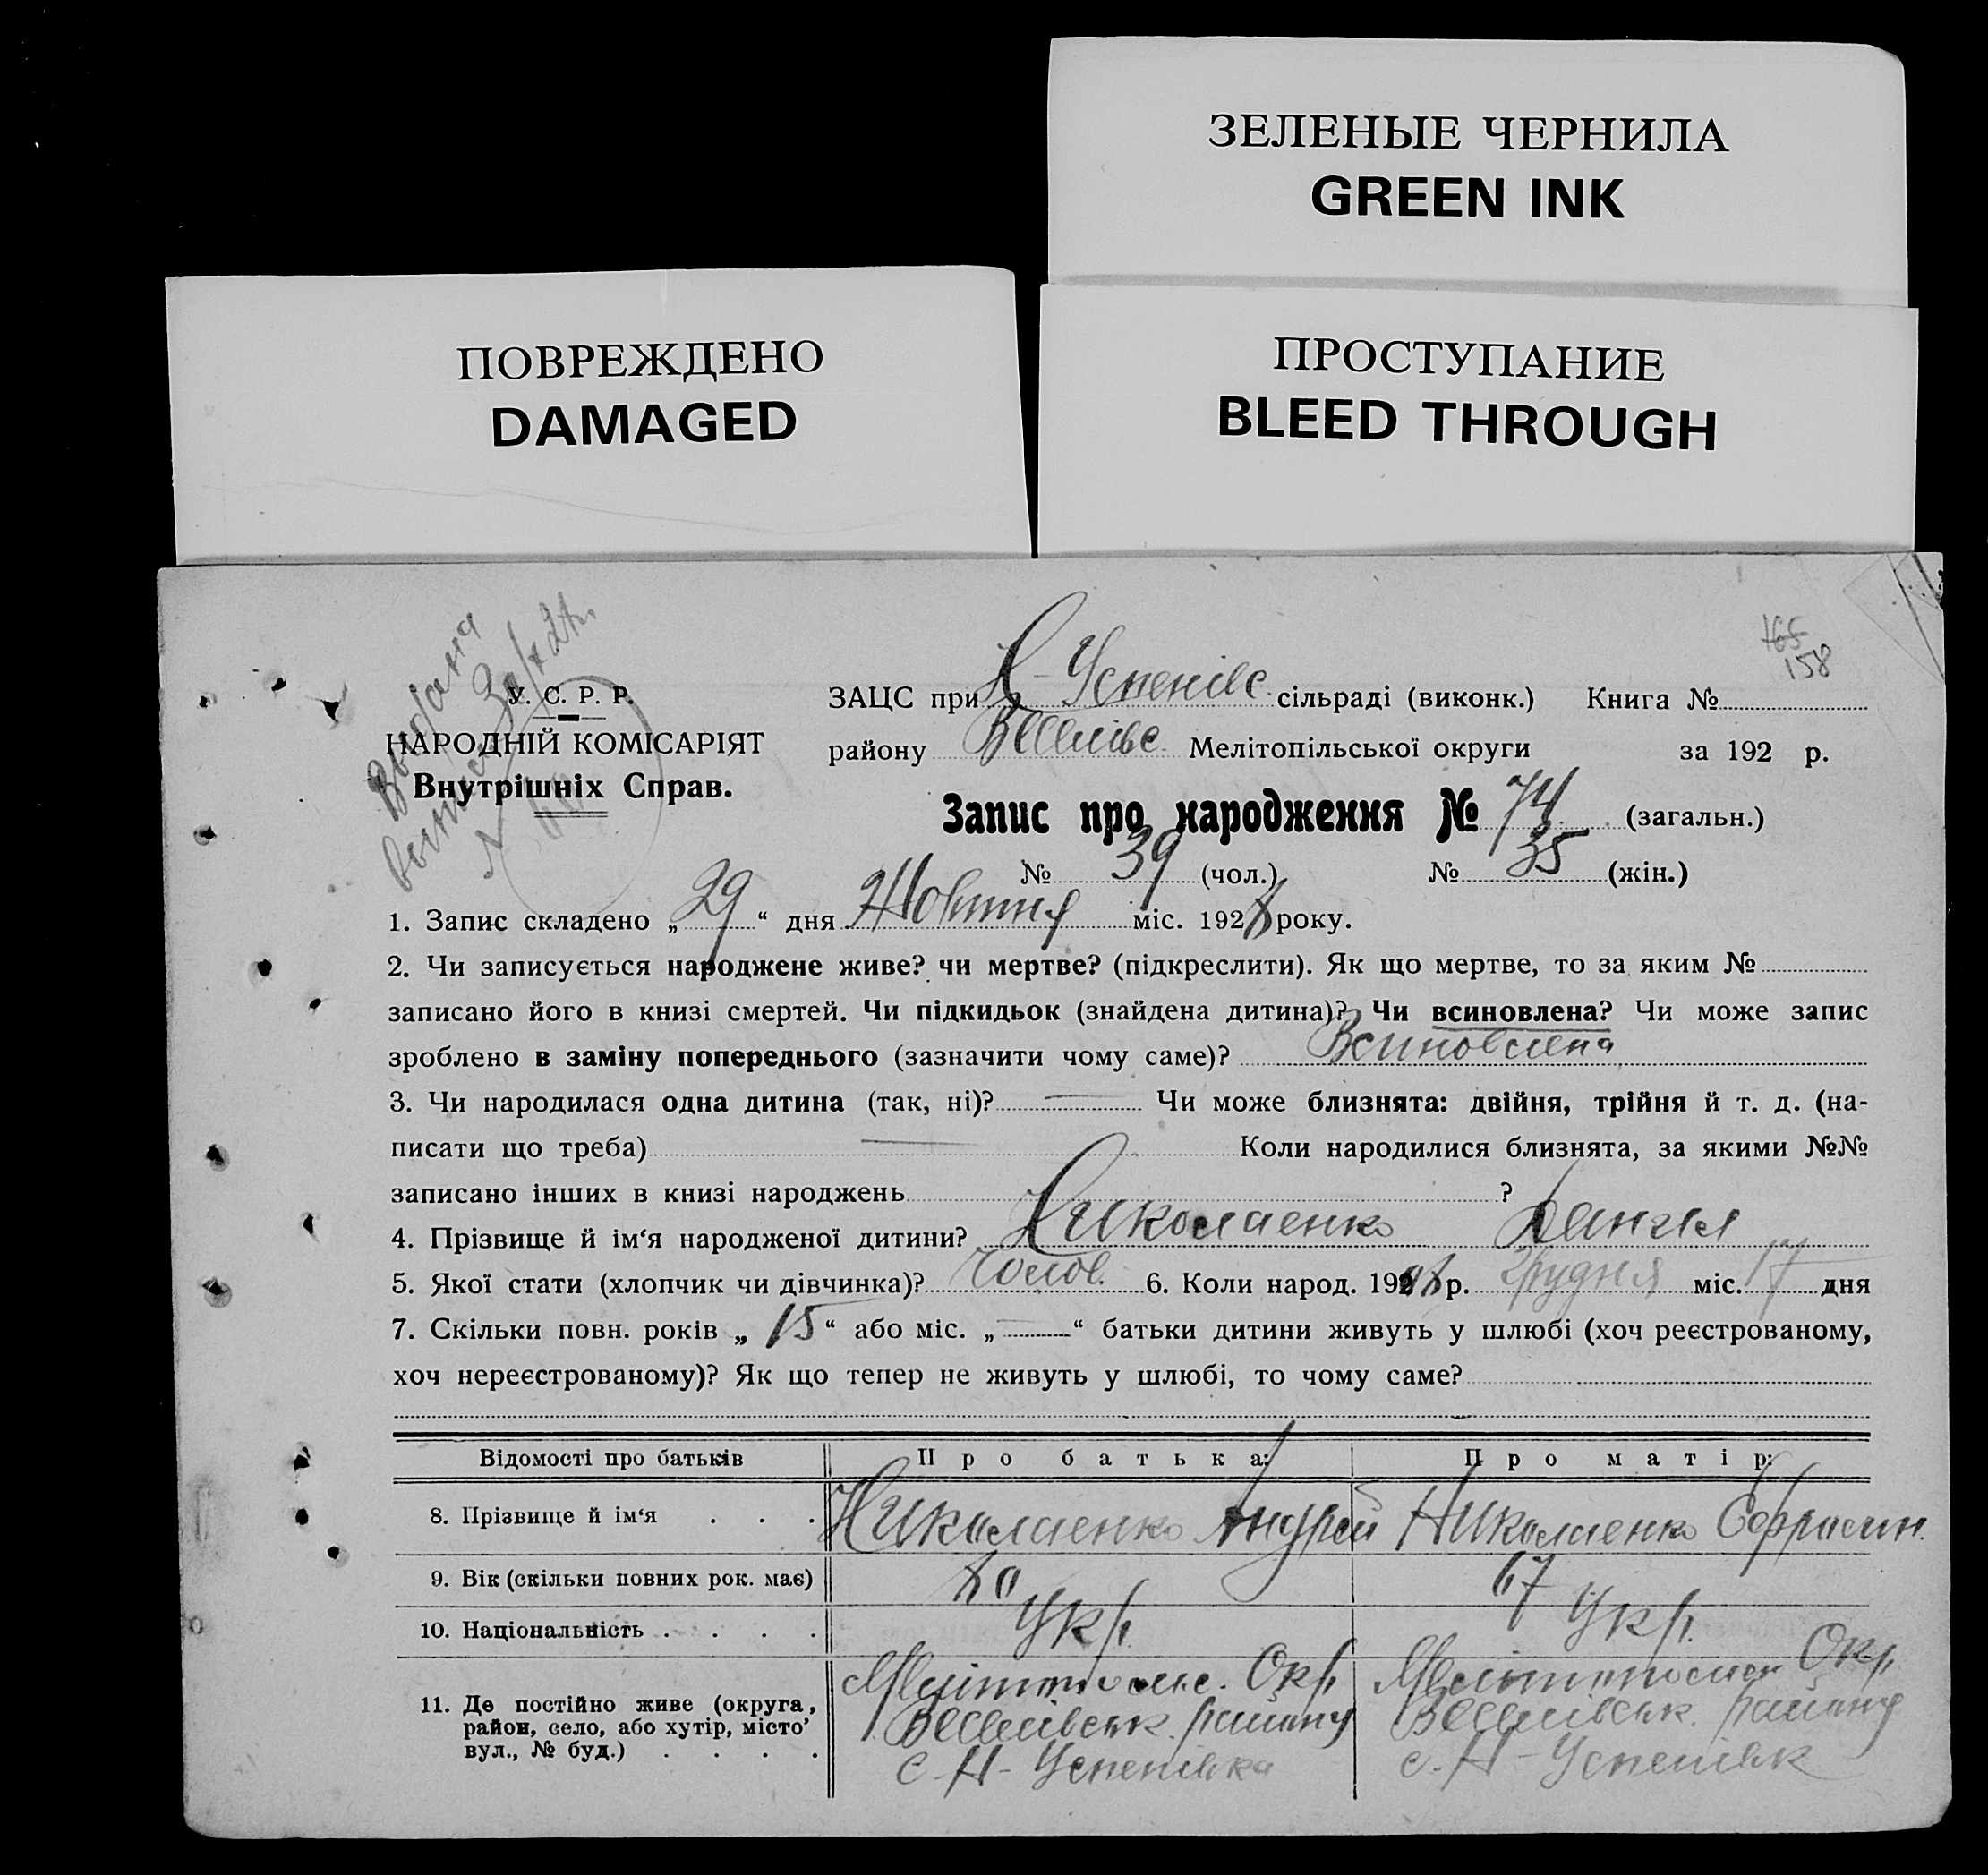 ЗЕЛЕНЫЕ ЧЕРНИЛА
GREEN INK
ПОВРЕЖДЕНО
DAMAGED
ПРОСТУПАНИЕ
BLEED THROUGH
165
158
У. С. Р. Р.
НАРОДНІЙ КОМІСАРІЯТ
Внутрішніх Справ.
ЗАЦС при Н-Успенівс. сільраді (виконк.) Книга №
району Веселівс. Мелітопільської округи за 192 р.
Запис про народження № 74 (загальн.)
№ 39 (чол.) № 35 (жін.)
1. Запис складено „ 29 “ дня Жовтня міс. 1928 року.
2. Чи записується народжене живе? чи мертве? (підкреслити). Як що мертве, то за яким №
записано його в книзі смертей. Чи підкидьок (знайдена дитина)? Чи всиновлена? Чи може запис
зроблено в заміну попереднього (зазначити чому саме)? Всиновлена
3. Чи народилася одна дитина (так, ні)? — Чи може близнята: двійня, трійня й т. д. (на-
писати що треба) — Коли народилися близнята, за якими №№
записано інших в книзі народжень ?
4. Прізвище й ім‘я народженої дитини? Николаенко
5. Якої стати (хлопчик чи дівчинка)? Чолов. 6. Коли народ. 19 р. Грудня міс. 17 дня
7. Скільки повн. років „ 15 “ або міс. „ — “ батьки дитини живуть у шлюбі (хоч реєстрованому,
хоч нереєстрованому)? Як що тепер не живуть у шлюбі, то чому саме?
Відомості про батьків Про батька: Про матір:
8. Прізвище й ім‘я . . . Николаенко Андрей Николаенко Ефросин.
9. Вік (скільки повних рок. має) 80 67
10. Національність . . . . Укр. Укр.
11. Де постійно живе (округа, район, село, або хутір, місто’ вул., № буд.) . . . .
Мелітопольс. Окр. Мелітопольск Окр.
Веселівськ. району Веселівськ. району
с. Н-Успенівка с. Н-Успенівк